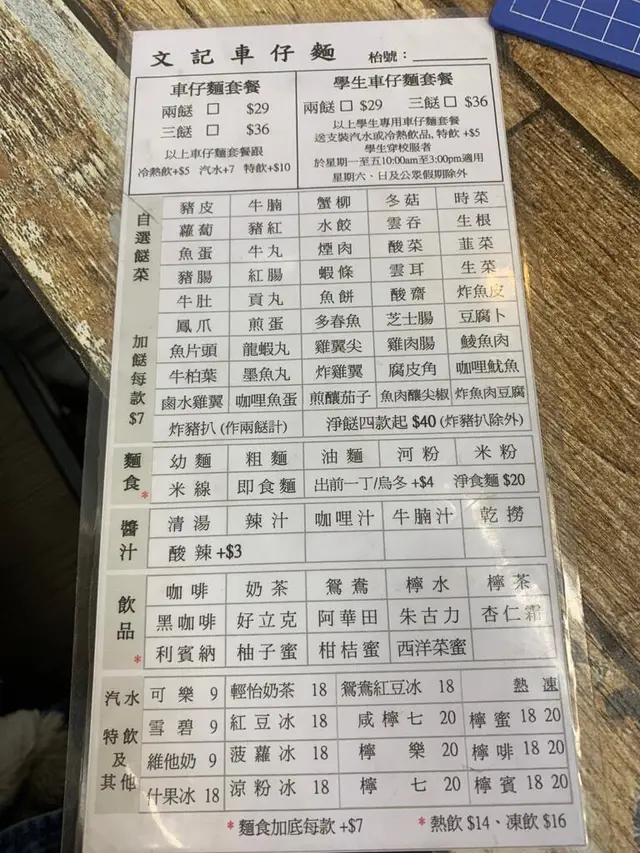 文記車仔麵 枱號：
車仔麵套餐
兩餸 □ $29
三餸 □ $36
以上車仔麵套餐跟
冷熱飲+$5 汽水+7 特飲+$10
學生車仔麵套餐
兩餸 □ $29 三餸 □ $36
以上學生專用車仔麵套餐
送支裝汽水或冷熱飲品, 特飲 +$5
學生穿校服者
於星期一至五10:00am至3:00pm適用
星期六、日及公眾假期除外
自選餸菜 加餸每款 $7
豬皮 牛腩 蟹柳 冬菇 時菜
蘿蔔 豬紅 水餃 雲吞 生根
魚蛋 牛丸 煙肉 酸菜 韮菜
豬腸 紅腸 蝦條 雲耳 生菜
牛肚 貢丸 魚餅 酸齋 炸魚皮
鳳爪 煎蛋 多春魚 芝士腸 豆腐卜
魚片頭 龍蝦丸 雞翼尖 雞肉腸 鯪魚肉
牛柏葉 墨魚丸 炸雞翼 腐皮角 咖哩魷魚
鹵水雞翼 咖哩魚蛋 煎釀茄子 魚肉釀尖椒 炸魚肉豆腐
炸豬扒 (作兩餸計) 淨餸四款起 $40 (炸豬扒除外)
麵食 *
幼麵 粗麵 油麵 河粉 米粉
米線 即食麵 出前一丁/烏冬 +$4 淨食麵 $20
醬汁
清湯 辣汁 咖哩汁 牛腩汁 乾撈
酸辣+$3
飲品 *
咖啡 奶茶 鴛鴦 檸水 檸茶
黑咖啡 好立克 阿華田 朱古力 杏仁霜
利賓納 柚子蜜 柑桔蜜 西洋菜蜜
汽水 特飲及其他
熱 凍
可樂 9 輕怡奶茶 18 鴛鴦紅豆冰 18
雪碧 9 紅豆冰 18 咸檸七 20 檸蜜 18 20
維他奶 9 菠蘿冰 18 檸樂 20 檸啡 18 20
什果冰 18 涼粉冰 18 檸七 20 檸賓 18 20
* 麵食加底每款 +$7 * 熱飲 $14、凍飲 $16